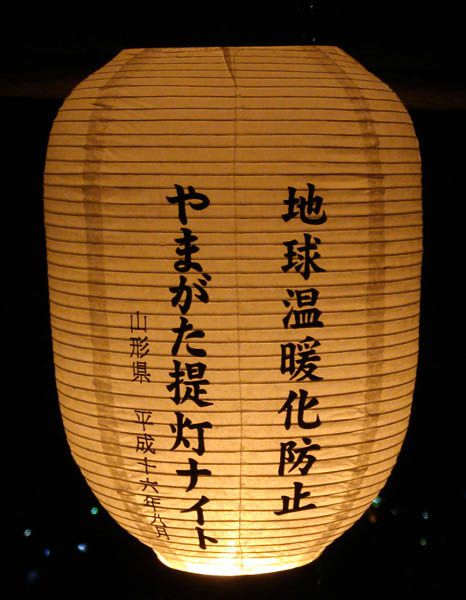 地球温暖化防止
やまがた提灯ナイト
山形県 平成十六年八月